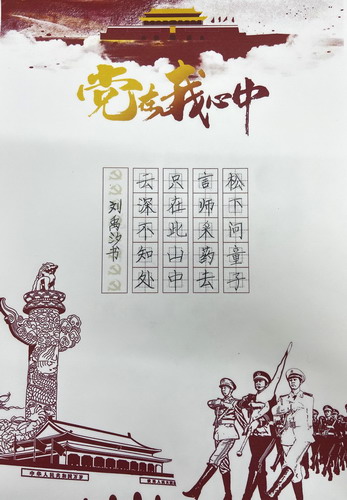 党在我心中
松下问童子
言师采药去
只在此山中
云深不知处
刘禹汐书